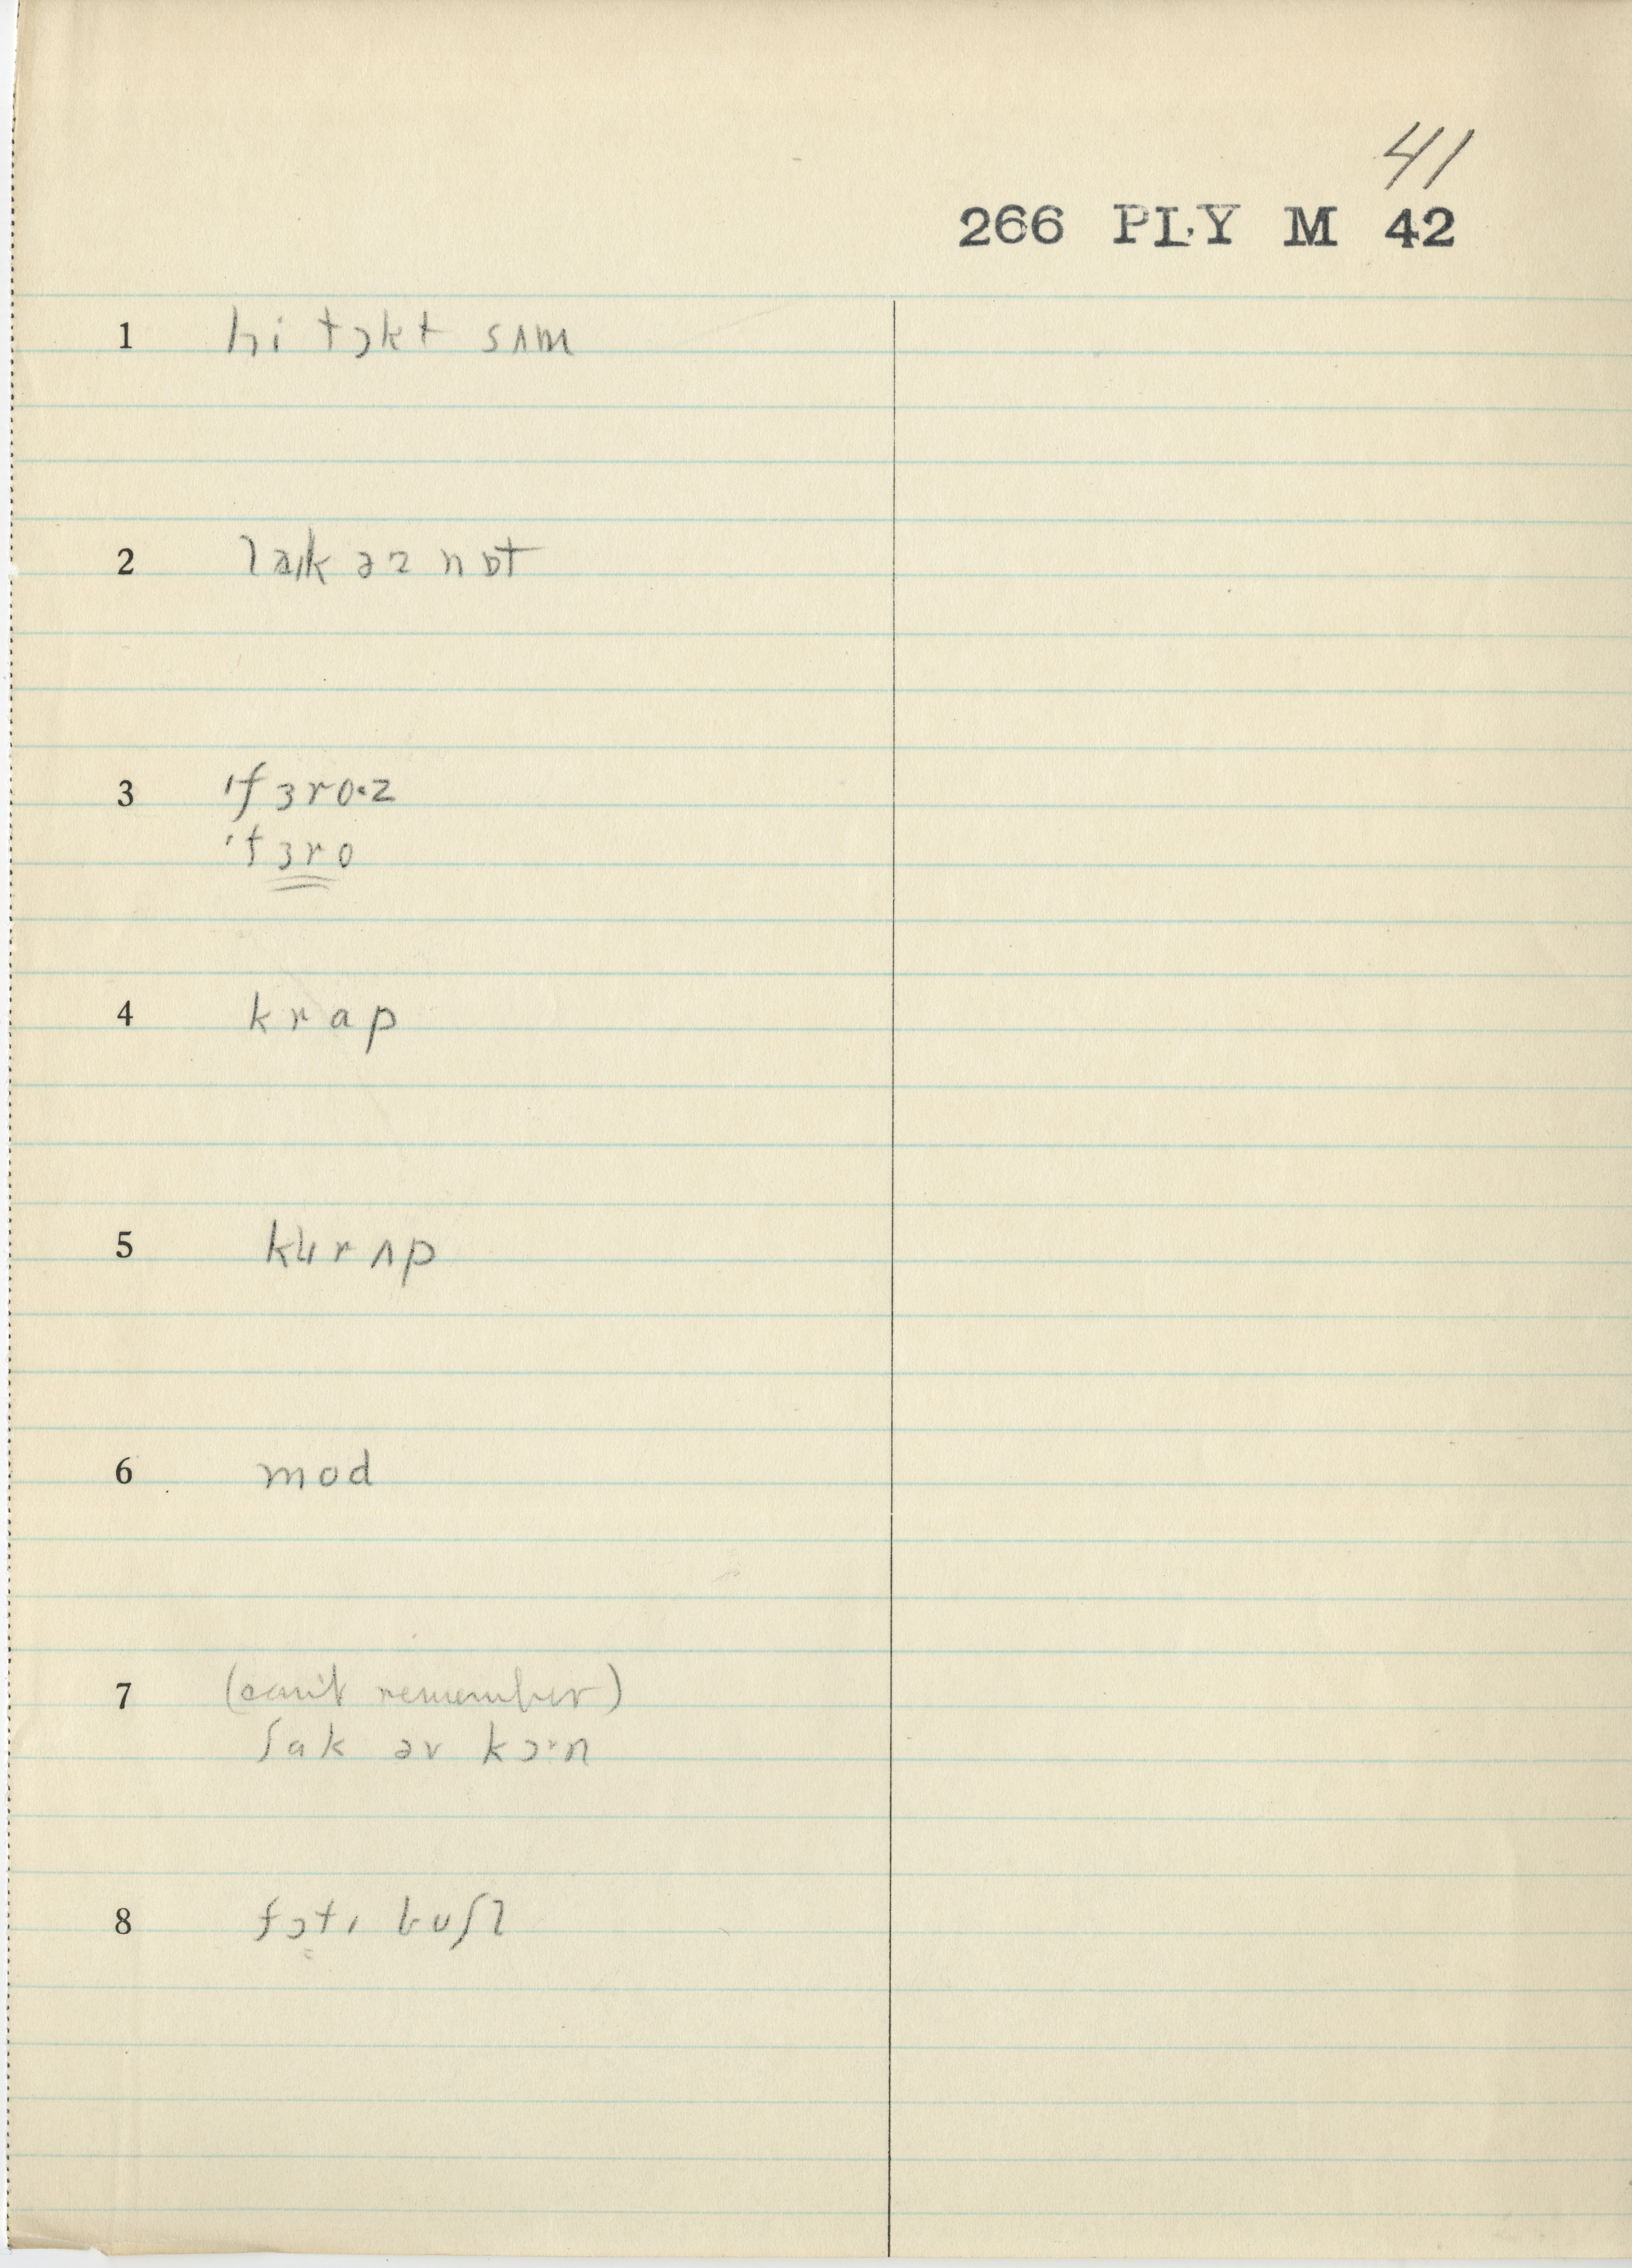 41
266 PLY M 42
1 hi tɔkt sʌm
2 laɪk əz nɒt
3 'fɜroˑz
'fɜro
4 krap
5 kʜrʌp
6 mod
7 (can't remember)
ʃak əv kɔˑn
8 fɔtɪ buʃl